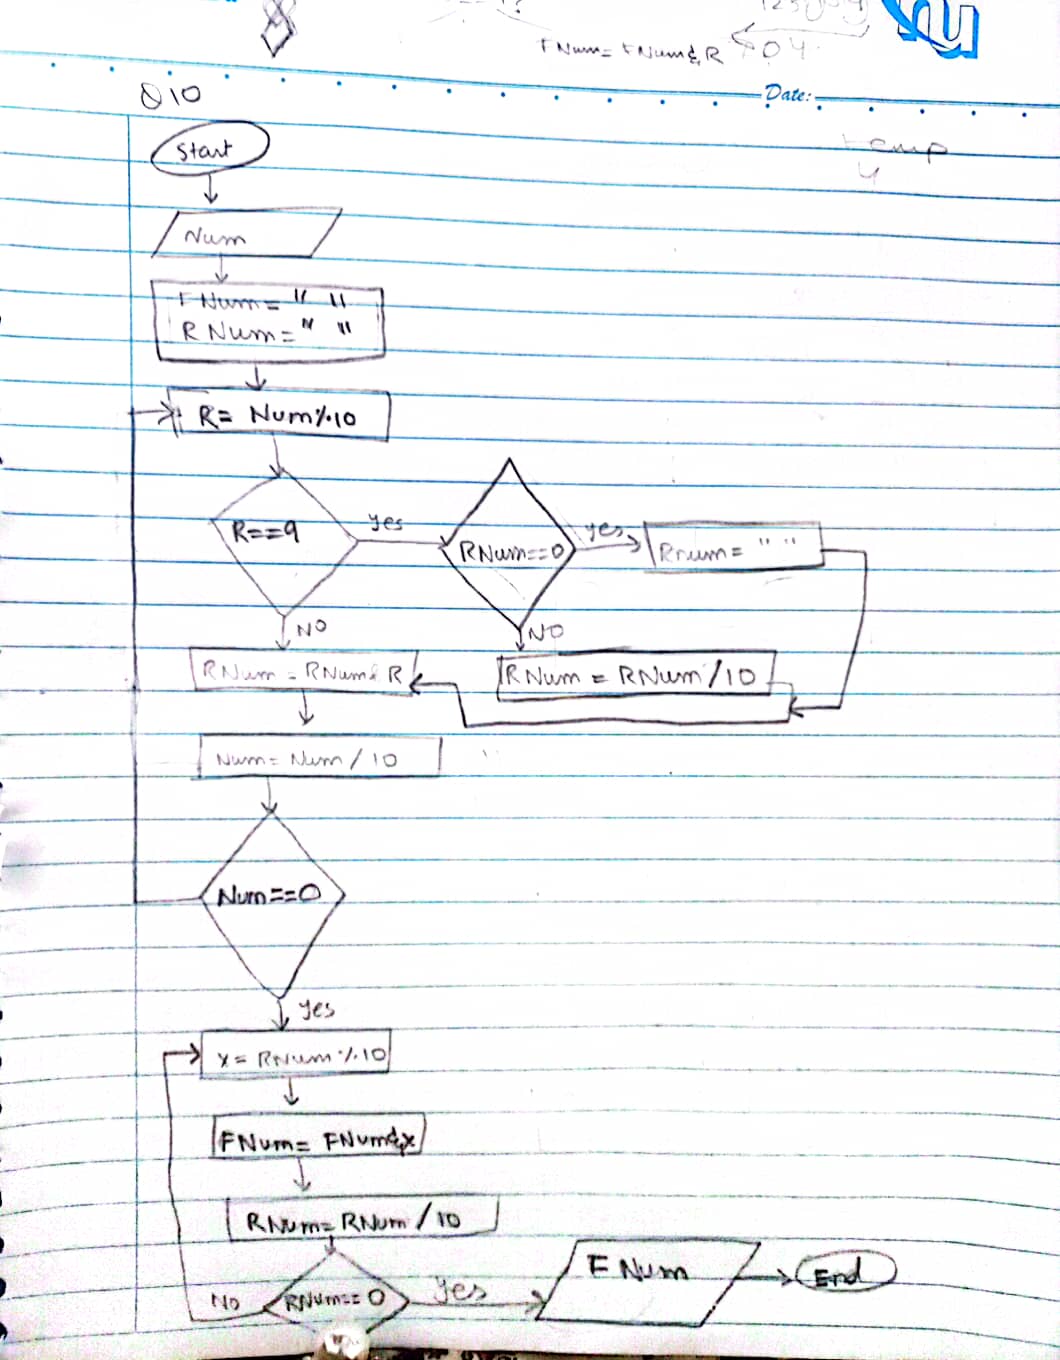 FNum= FNum& R
04
Date:
Q10
temp
4
Start
Num
FNum= " "
RNum= " "
R= Num%10
R==9
yes
RNum==0
yes
Rnum= " "
NO
NO
RNum = RNum& R
RNum = RNum/10
Num= Num/10
Num==0
yes
x= RNum%10
FNum= FNum&x
RNum= RNum/10
RNum== 0
No
yes
FNum
End